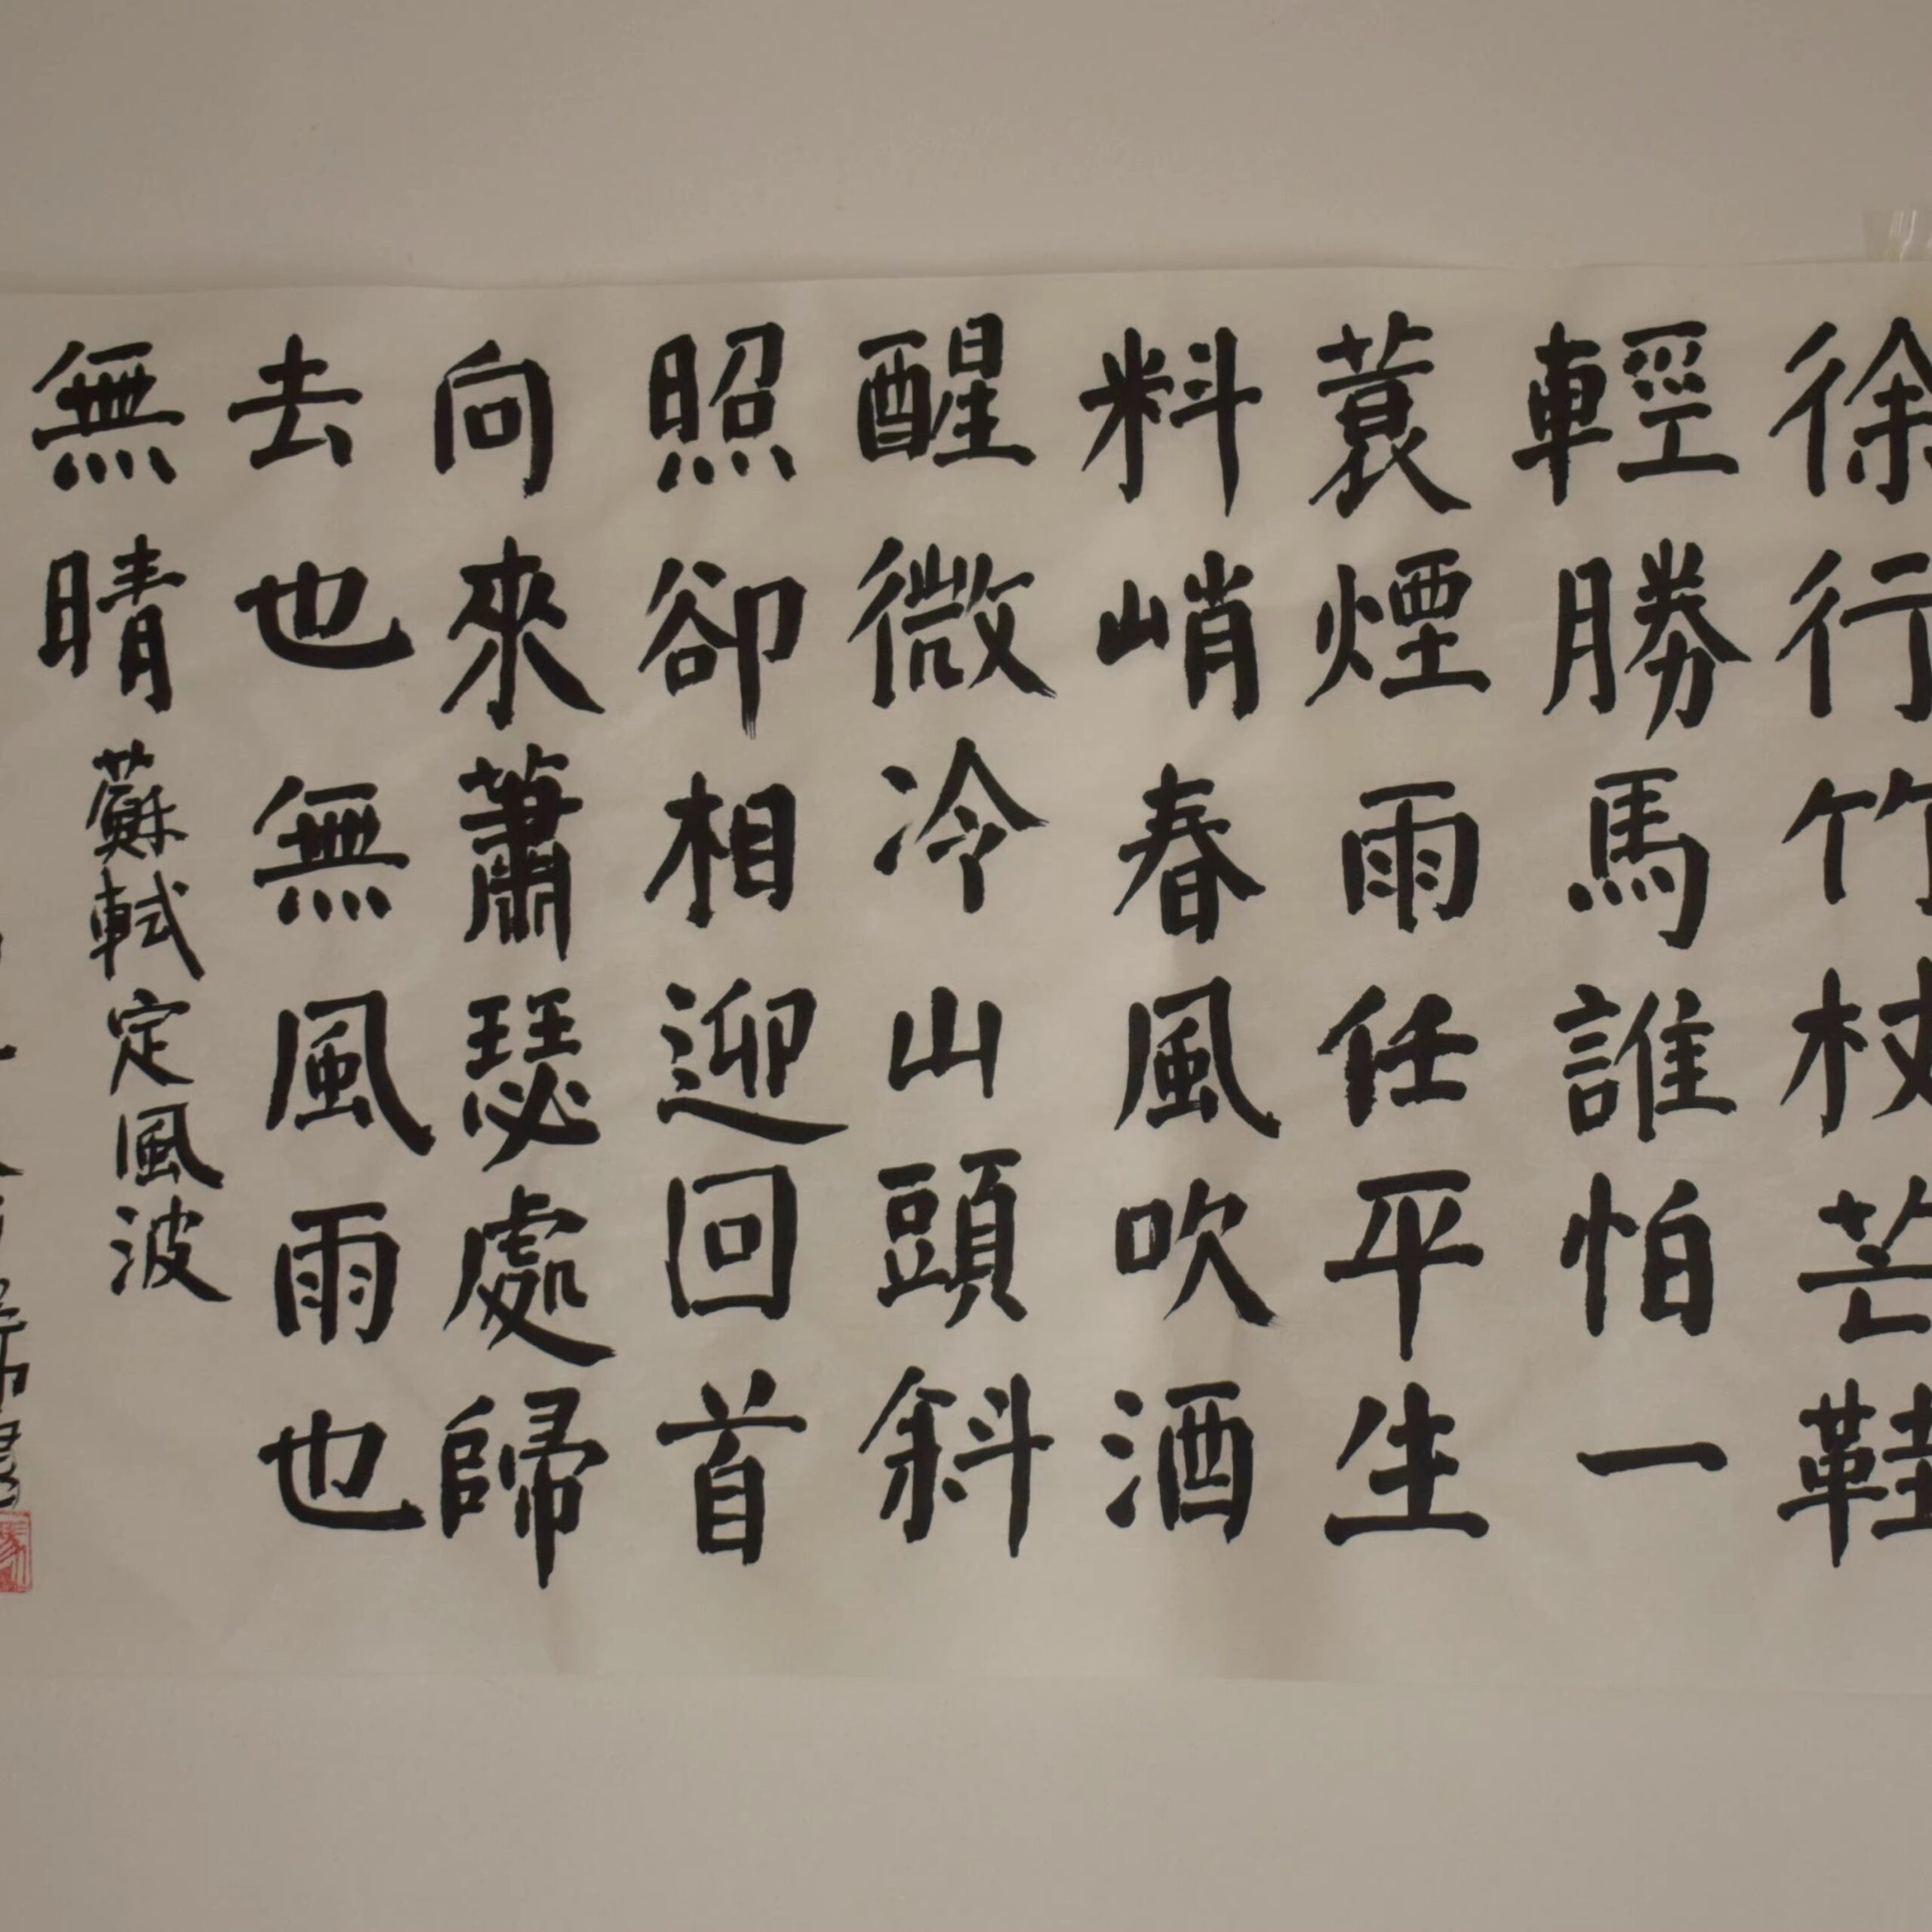 徐行竹杖芒鞋
輕勝馬誰怕一
蓑煙雨任平生
料峭春風吹酒
醒微冷山頭斜
照卻相迎回首
向來蕭瑟處歸
去也無風雨也
無晴蘇軾定風波